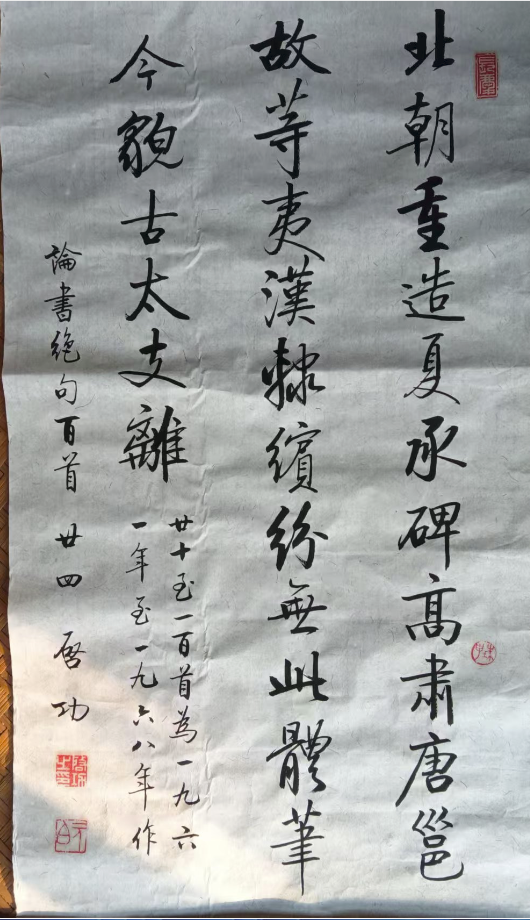 北朝重造夏承碑高肅唐邕
故等夷漢隸繽紛無此體筆
今貌古太支離
廿十至一百首為一九六
一年至一九六八年作
論書絶句百首 廿四 啓功